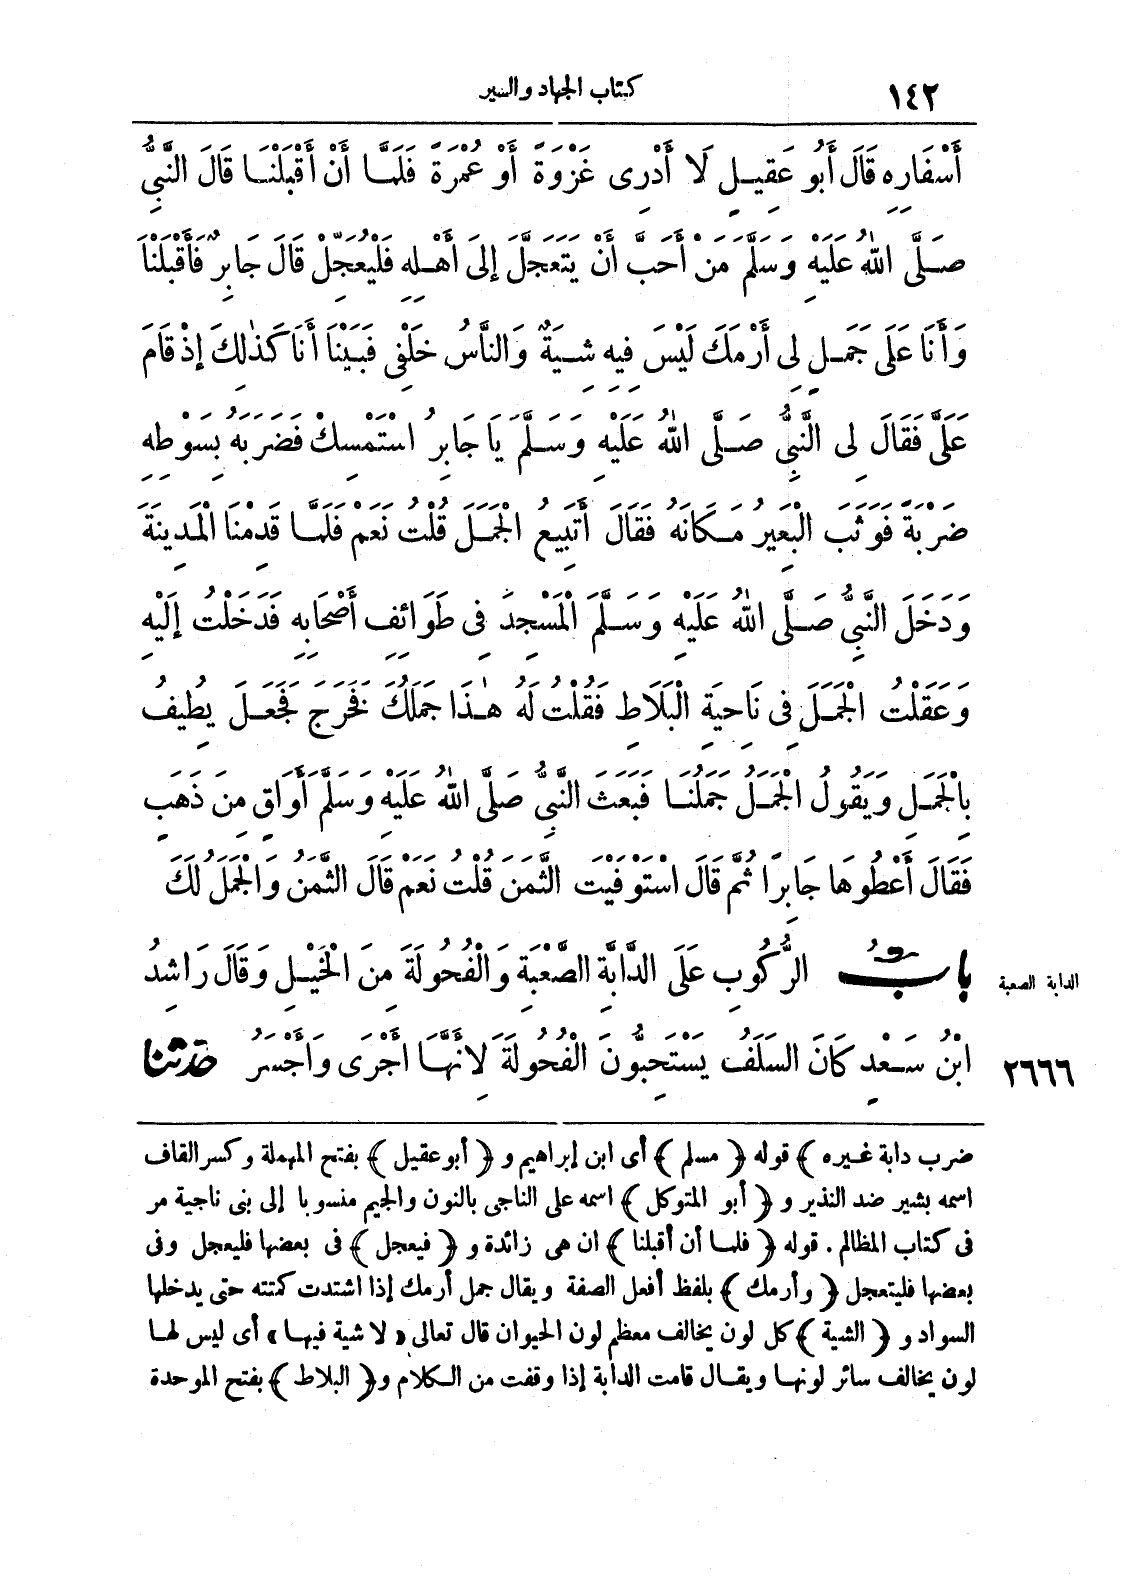 ١٤٢ كتاب الجهاد والسير
أَسْفَارِهِ قَالَ أَبُو عَقِيلٍ لَا أَدْرِى غَزْوَةً أَوْ عُمْرَةً فَلَمَّا أَنْ أَقْبَلْنَا قَالَ النَّبِىُّ
صَلَّى اللهُ عَلَيْهِ وَسَلَّمَ مَنْ أَحَبَّ أَنْ يَتَعَجَّلَ إِلَى أَهْلِهِ فَلْيُعَجِّلْ قَالَ جَابِرٌ فَأَقْبَلْنَا
وَأَنَا عَلَى جَمَلٍ لِى أَرْمَكَ لَيْسَ فِيهِ شِيَةٌ وَالنَّاسُ خَلْفِى فَبَيْنَا أَنَا كَذٰلِكَ إِذْ قَامَ
عَلَىَّ فَقَالَ لِى النَّبِىُّ صَلَّى اللهُ عَلَيْهِ وَسَلَّمَ يَا جَابِرُ اسْتَمْسِكْ فَضَرَبَهُ بِسَوْطِهِ
ضَرْبَةً فَوَثَبَ الْبَعِيرُ مَكَانَهُ فَقَالَ أَتَبِيعُ الْجَمَلَ قُلْتُ نَعَمْ فَلَمَّا قَدِمْنَا الْمَدِينَةَ
وَدَخَلَ النَّبِىُّ صَلَّى اللهُ عَلَيْهِ وَسَلَّمَ الْمَسْجِدَ فِى طَوَائِفِ أَصْحَابِهِ فَدَخَلْتُ إِلَيْهِ
وَعَقَلْتُ الْجَمَلَ فِى نَاحِيَةِ الْبَلَاطِ فَقُلْتُ لَهُ هٰذَا جَمَلُكَ فَخَرَجَ فَجَعَلَ يُطِيفُ
بِالْجَمَلِ وَيَقُولُ الْجَمَلُ جَمَلُنَا فَبَعَثَ النَّبِىُّ صَلَّى اللهُ عَلَيْهِ وَسَلَّمَ أَوَاقٍ مِنْ ذَهَبٍ
فَقَالَ أَعْطُوهَا جَابِرًا ثُمَّ قَالَ اسْتَوْفَيْتَ الثَّمَنَ قُلْتُ نَعَمْ قَالَ الثَّمَنُ وَالْجَمَلُ لَكَ
الدابة الصعبة بَابُ الرُّكُوبِ عَلَى الدَّابَّةِ الصَّعْبَةِ وَالْفُحُولَةِ مِنَ الْخَيْلِ وَقَالَ رَاشِدُ
٢٦٦٦ ابْنُ سَعْدٍ كَانَ السَّلَفُ يَسْتَحِبُّونَ الْفُحُولَةَ لِأَنَّهَا أَجْرَى وَأَجْسَرُ حدثنا
ضرب دابة غيره﴾ قوله ﴿مسلم﴾ أى ابن إبراهيم و﴿أبو عقيل﴾ بفتح المهملة وكسر القاف
اسمه بشير ضد النذير و ﴿أبو المتوكل﴾ اسمه على الناجى بالنون والجيم منسوبا إلى بنى ناجية مر
فى كتاب المظالم . قوله ﴿فلما أن أقبلنا﴾ ان هى زائدة و﴿فيعجل﴾ فى بعضها فليعجل وفى
بعضها فليتعجل ﴿وأرمك﴾ بلفظ أفعل الصفة ويقال جمل أرمك إذا اشتدت كمتته حتى يدخلها
السواد و ﴿الشية﴾ كل لون يخالف معظم لون الحيوان قال تعالى «لا شية فيها» أى ليس لها
لون يخالف سائر لونها ويقال قامت الدابة إذا وقفت من الكلام و﴿البلاط﴾ بفتح الموحدة